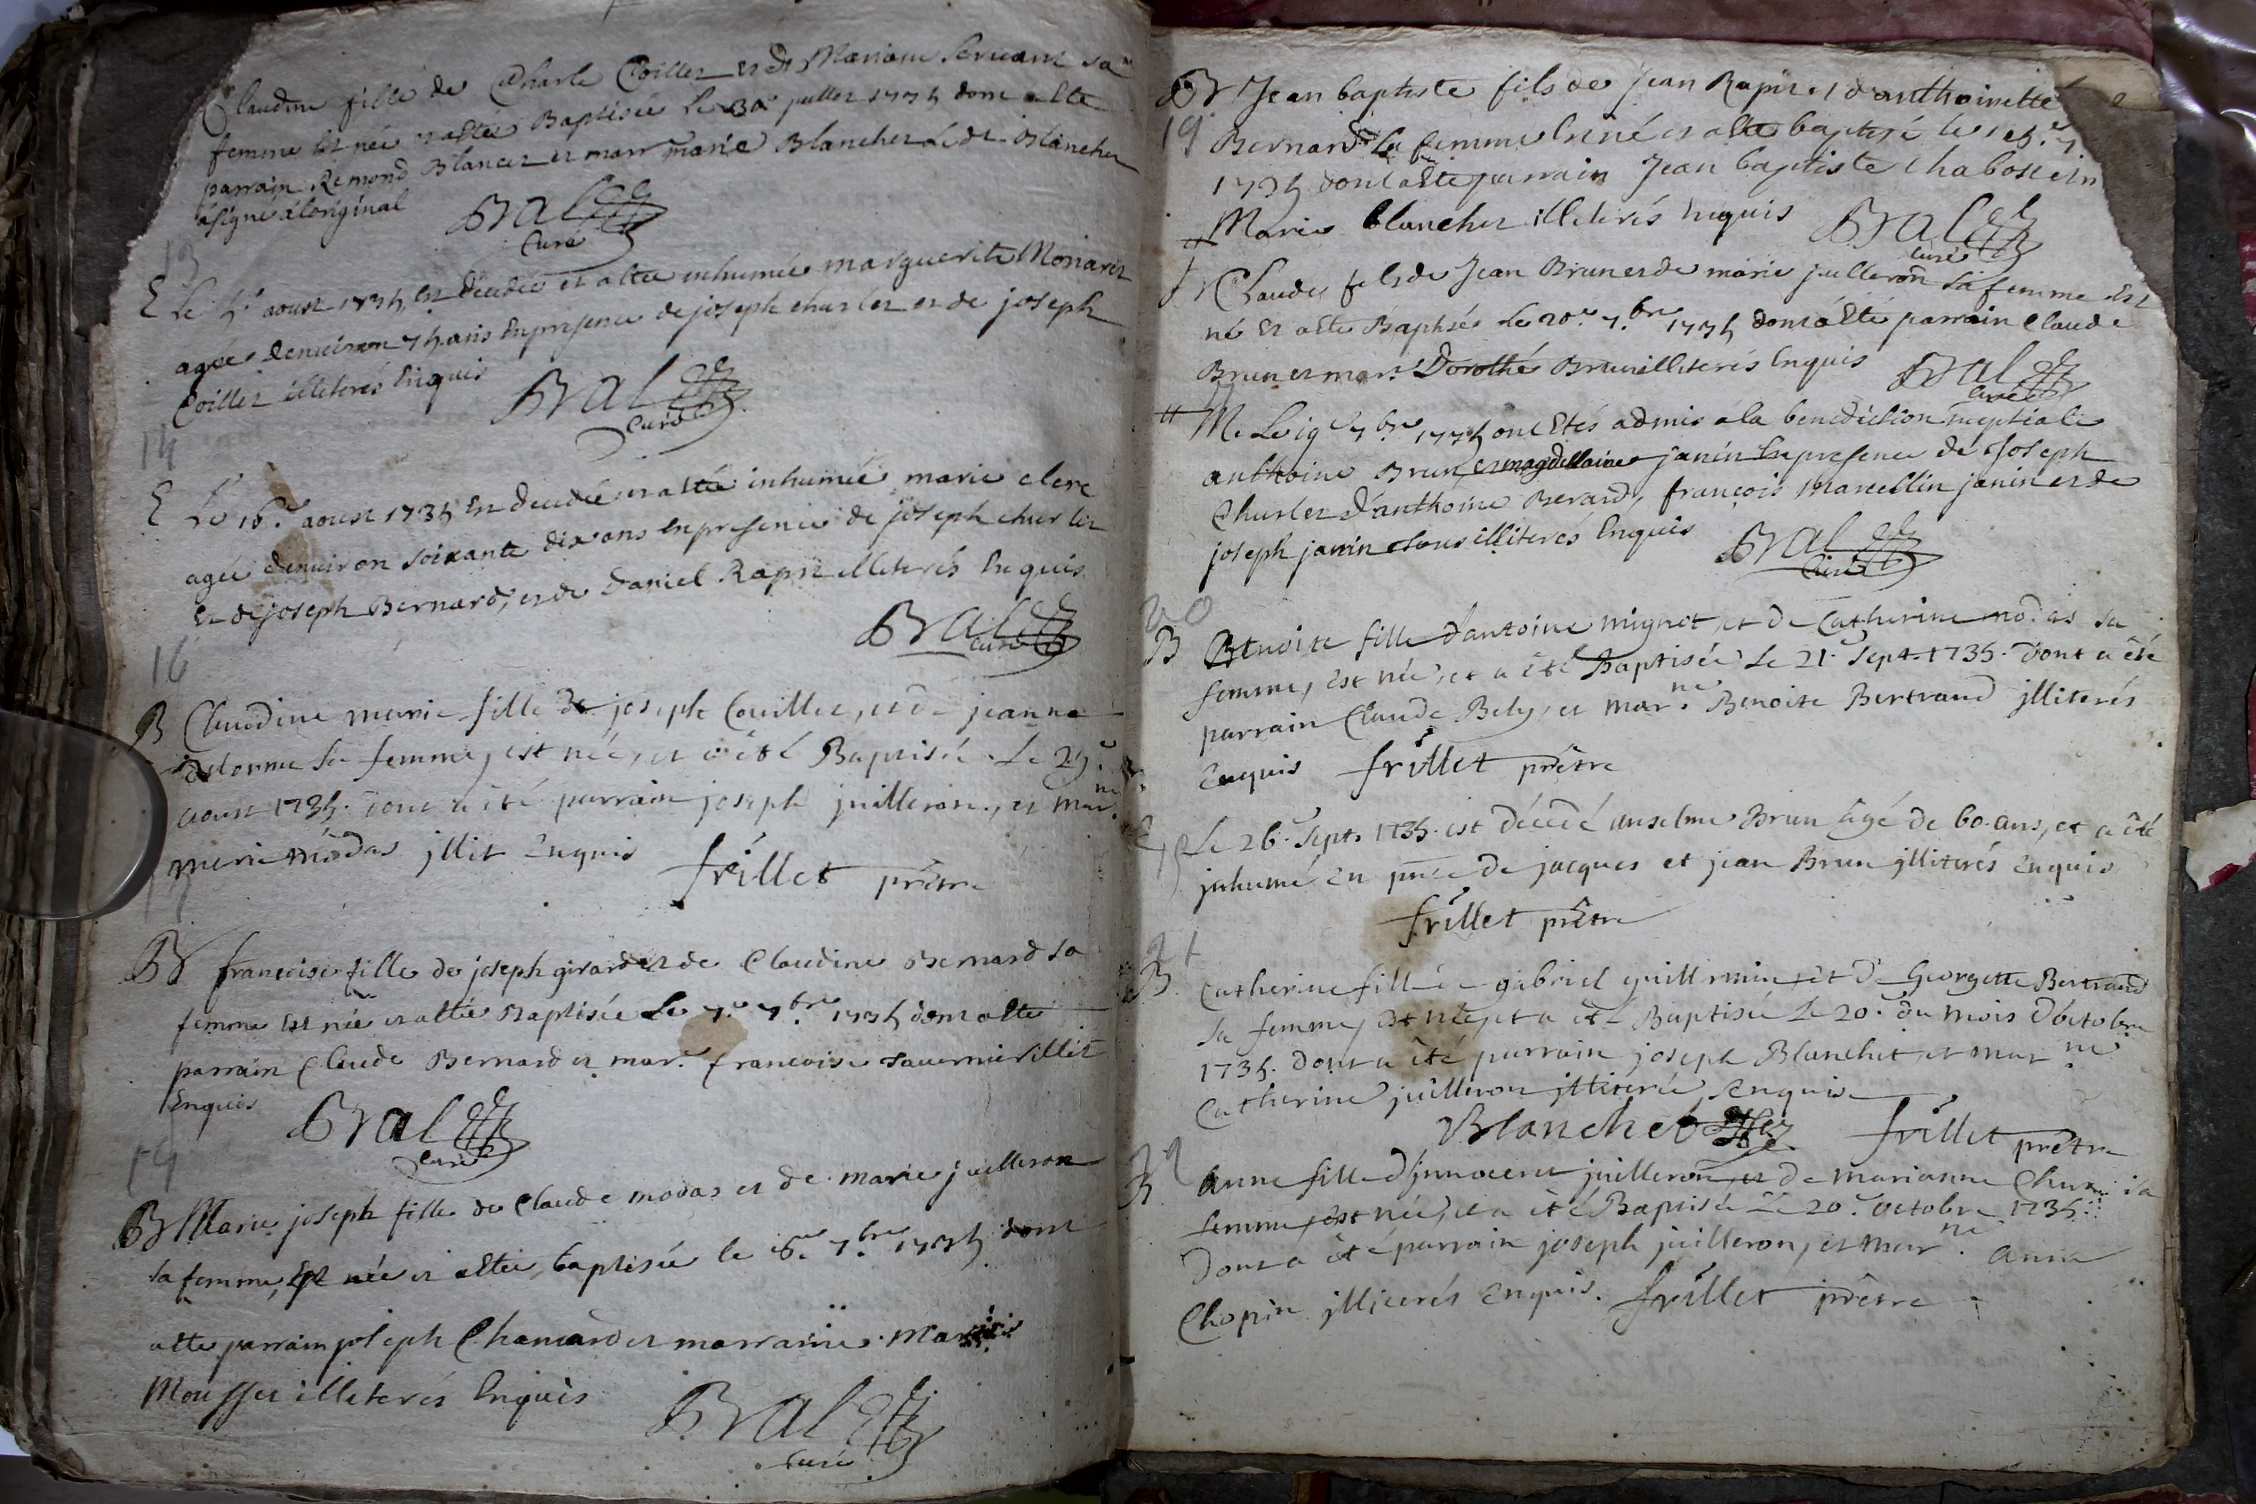 Claudine fille de Charle Coillet et de Mariane servant sa
femme est née et a été Baptisée Le 30e juillet 1735 dont a été
parrain Remond Blancet et marr marie Blanchet Ledt Blanchet
a signé a loriginal
Bral
Curé
13
E Le 5e aoust 1735 est décédée et a été inhumée marguerite Moniaret
agée denviron 75 ans En presence de joseph charlet et de joseph
Coillet illiterés Enquis
Bral
Curé
14
E Le 16e aoust 1735 est decedée et a été inhumée marie clerc
agée denviron soixante dix ans en presence de joseph charlet
et de joseph Bernard, et de Daniel Rapit illiterés Enquis
Bral
Curé
16
B Claudine marie fille de joseph Coüillet, et de jeanne
delorme sa femme, est née, et a été Baptisée Le 29e
aoust 1735. dont a été parrain joseph juilleron, et mar.ne
marie modas jllit Enquis
frillet prêtre
17
B francoise fille de joseph girard et de Claudine Bernard sa
femme est née et a été Baptisée Le 7e 7bre 1735 dont a été
parrain Claude Bernard et mar. francoise Tavernier illit
Enquis
Bral
Curé
B Marie joseph fille de Claude modas et de marie juilleron
sa femme, est née et a été baptisée le 7bre 1735 dont
a été parrain joseph Chanard et marraine Marie
Mousset illiterés Enquis
Bral
Curé
B Jean baptiste fils de Jean Rapit et d'anthoinette
19 Bernard sa femme est né et a été baptisé le
1735 dont a été parrain Jean baptiste chabost et
Marie blanchet illiterés Enquis
Bral
Curé
Claude fils de Jean Brun et de marie juilleron sa femme est
né et a été Baptisé Le 20e 7bre 1735 dont a été parrain Claude
Brun et mar. Dorothé Brun illiterés Enquis
Bral
Curé
M Le 7bre 1735 ont étés admis a la benediction nuptiale
anthoine Brun et magdellaine janin En presence de Joseph
Charlet d'anthoine Berard, françois Marcellin janin et de
joseph janin tous illiterés Enquis
Bral
Curé
20
B Benoite fille d'antoine mignot, et de Catherine modas sa
femme, est née, et a été Baptisée Le 21. Sept. 1735. dont a été
parrain Claude Bely, et mar.ne Benoite Bertrand jlliterés
Enquis frillet prêtre
E Le 26. Sept. 1735. est décedé anselme Brun âgé de 60. ans, et a été
jnhumé en pnce de jacques et jean Brun jlliterés enquis
frillet prêtre
21
B Catherine fille de gabriel guillermin, et de Georgette Bertrand
sa femme, est née, et a été Baptisée Le 20. du mois d'octobre
1735. dont a été parrain joseph Blanchet, et mar.ne
Catherine juilleron jlliterée, Enquise
Blanchet frillet prêtre
22
B Anne fille d'jnnocent juilleron, et de marianne sa
femme, est née, et a été Baptisée Le 20. octobre 1735.
Dont a été parrain joseph juilleron, et mar.ne anne
Chopin jlliterés Enquis. frillet prêtre